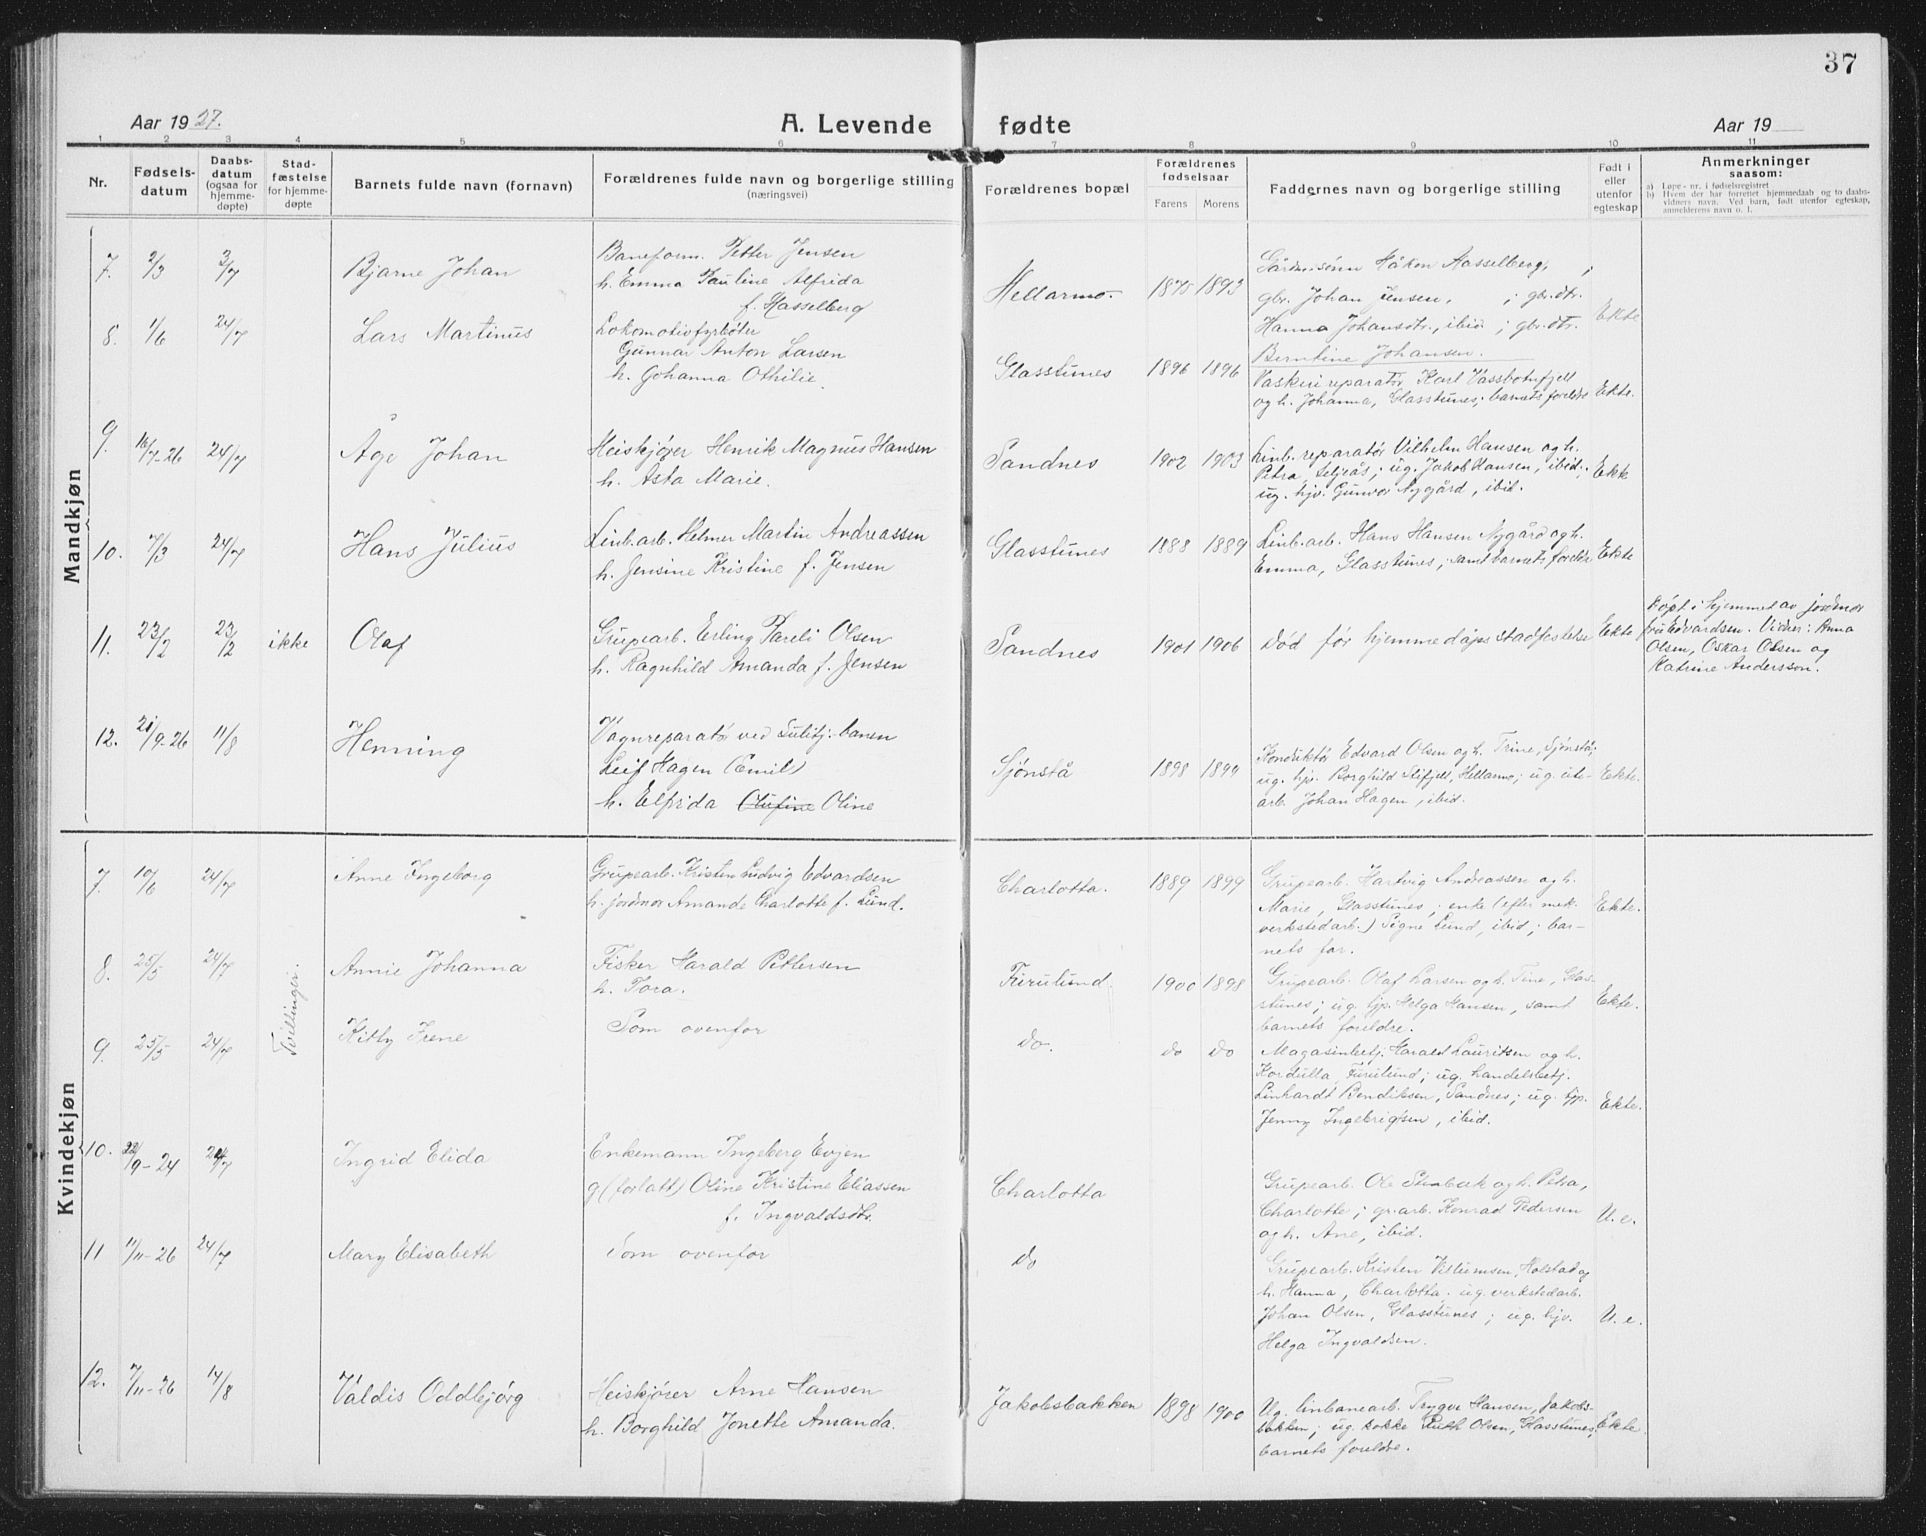 37
Aar 1927. A. Levende fødte Aar 19
1 2 3 4 5 6 7 8 9 10 11
Nr.
Fødsels-
datum
Daabs-
datum
(ogsaa for
hjemme-
døpte)
Stad-
fæstelse
for hjemme-
døpte
Barnets fulde navn (fornavn)
Forældrenes fulde navn og borgerlige stilling
(næringsvei)
Forældrenes bopæl
Forældrenes
fødselsaar
Farens Morens
Faddernes navn og borgerlige stilling
Født i
eller
utenfor
egteskap
Anmerkninger
saasom:
a) Løpe-nr. i fødselsregistret
b) Hvem der har forrettet hjemmedaab og to daabs-
vidners navn. Ved barn, født utenfor egteskap,
anmelderens navn o. l.
Mandkjøn
7. 2/3 3/7 Bjarne Johan
Baneform. Petter Jensen
h. Emma Pauline Alfrida
f. Hasselberg
Hellarmo. 1875 1893
Gårdm.sønn Håkon Hasselberg,
gbr. Johan Jensen, ; gbr.dtr.
Hanna Johansdtr., ibid ; gbr.dtr.
Berntine Johansen.
Ekte
8. 1/6 24/7 Lars Martinus
Lokomotivfyrbøter
Gunnar Anton Larsen
h. Johanna Othilie.
Glasstunes 1896 1896
Vaskerireparatør Karl Vassbotnfjell
og h. Johanna, Glasstunes; barnets foreldre
Ekte.
9. 16/7-26 24/7 Åge Johan
Heiskjører Henrik Magnus Hansen
h. Asta Marie.
Sandnes 1902 1903
Linb.reparatør Vilhelm Hansen og h.
Petra, ; ug. Jakob Hansen, ibid.;
ug. hjv. Gunvor Nygård, ibid.
Ekte
10. 7/3 24/7 Hans Julius
Linb.arb. Helmer Martin Andreassen
h. Jensine Kristine f. Jensen
Glasstunes 1888 1889
Linb.arb. Hans Hansen Nygård og h.
Emma, Glasstunes; samt barnets foreldre
Ekte
11. 23/2 23/2 ikke Olaf
Grupearb. Erling Pareli Olsen
h. Ragnhild Amanda f. Jensen
Sandnes 1901 1906
Død før hjemmedåps stadfestelse
Ekte
Døpt i hjemmet av jordmor
fru Edvardsen. Vidner: Anna
Olsen, Oskar Olsen og
Katrine Andersson.
12. 21/9-26 11/8 Henning
Vagnreparatør ved Sulitj.-banen
Leif Hagen (Emil)
h. Elfrida Olufine Oline
Sjønstå 1898 1899
Konduktør Edvard Olsen og h. Trine, Sjønstå;
ug. hjv. Borghild Stifjell, Hellarmo; ug. ute-
arb. Johan Hagen, ibid.
Ekte.
Kvindekjøn
7. 10/6 24/7 Anne Ingeborg
Grupearb. Kristen Ludvig Edvardsen
h. jordmor Amanda Charlotte f. Lund.
Charlotta. 1889 1899
Grupearb. Hartvig Andreassen og h.
Marie, Glasstunes; enke (efter mek.
verkstedarb.) Signe Lund, ibid; bar-
nets far.
Ekte.
8. 25/5 24/7 Tvillinger. Annie Johanna
Fisker Harald Pettersen
h. Tora.
Furulund. 1900 1898
Grupearb. Olaf Larsen og h. Tine, Glas-
stunes; ug. tjp. Helga Hansen, samt
barnets foreldre.
Ekte.
9. 25/5 24/7 Kitty Irene
Som ovenfor
do. do do
Magasinbetj. Harald Lauritsen og h.
Kordulla, Furulund; ug. handelsbetj.
Linhardt Bendiksen, Sandnes; ug. tjp.
Jenny Ingebrigtsen, ibid.
Ekte.
10. 22/9-24 24/7 Ingrid Elida
Enkemann Ingeberg Evjen
g (forlatt) Oline Kristine Eliassen
f. Ingvaldsdtr.
Charlotta
Grupearb. Ole Stenbæk og h. Petra,
Charlotte; gr.arb. Konrad Pedersen
og h. Ane, ibid.
U. e.
11 11/11-26 24/7 Mary Elisabeth
Som ovenfor
do
Grupearb. Kristen Villumsen, Holstad og
h. Hanna, Charlotta; ug. verkstedarb.
Johan Olsen, Glasstunes; ug. hjv.
Helga Ingvaldsen.
U. e.
12. 7/11-26 14/8 Valdis Oddbjørg
Heiskjører Arne Hansen
h. Borghild Jonette Amanda.
Jakobsbakken 1898 1900
Ug. linbanearb. Trygve Hansen, Jakobs-
bakken; ug. kokke Ruth Olsen, Glasstunes;
barnets foreldre.
Ekte.